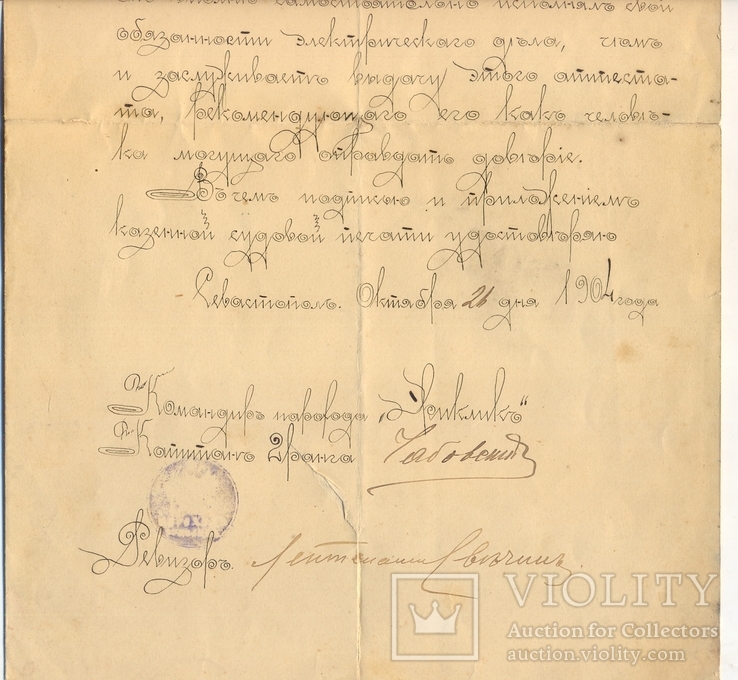 самостоятельно исполнялъ свои
обязанности электрическаго дѣла, чѣмъ
и заслуживаетъ выдачу этого аттеста-
та, рекомендующаго его какъ человѣ-
ка могущаго оправдать довѣріе.
Въ чемъ подписью и приложеніемъ
казенной судовой печати удостовѣряю
Севастополь. Октября 21 дня 1904 года
Командиръ парохода „Эриклик“
Капитанъ 2 ранга
Ревизоръ. Лейтенантъ Свѣчинъ
VIOLITY
Auction for Collectors
auction.violity.com